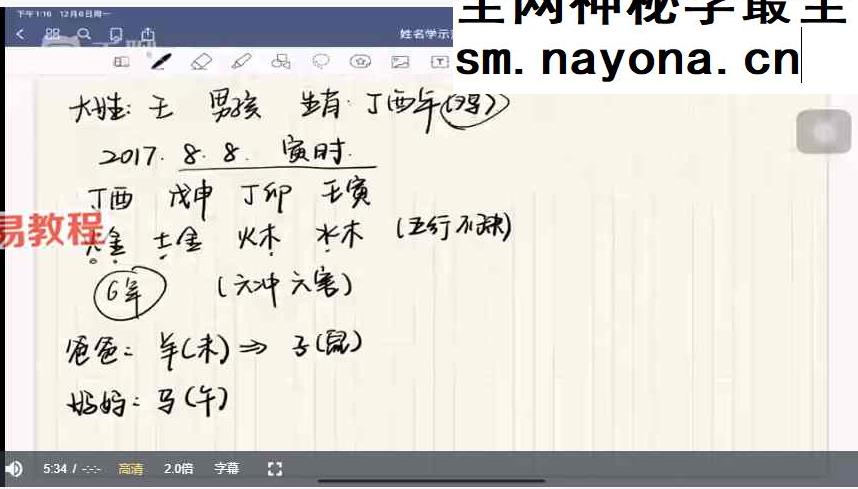 下午1:16 12月6日周一
全网神秘学最全
sm.nayona.cn
姓名学示
大姓: 王 男孩 生肖: 丁酉年(鸡)
2017. 8. 8. 寅时.
丁酉 戊申 丁卯 壬寅
易教程
火金 土金 火木 水木 (五行不缺)
(六冲 六害)
爸爸: 羊(未) ⇒ 子(鼠)
妈妈: 马(午)
5:34 / -:-:- 高清 2.0倍 字幕